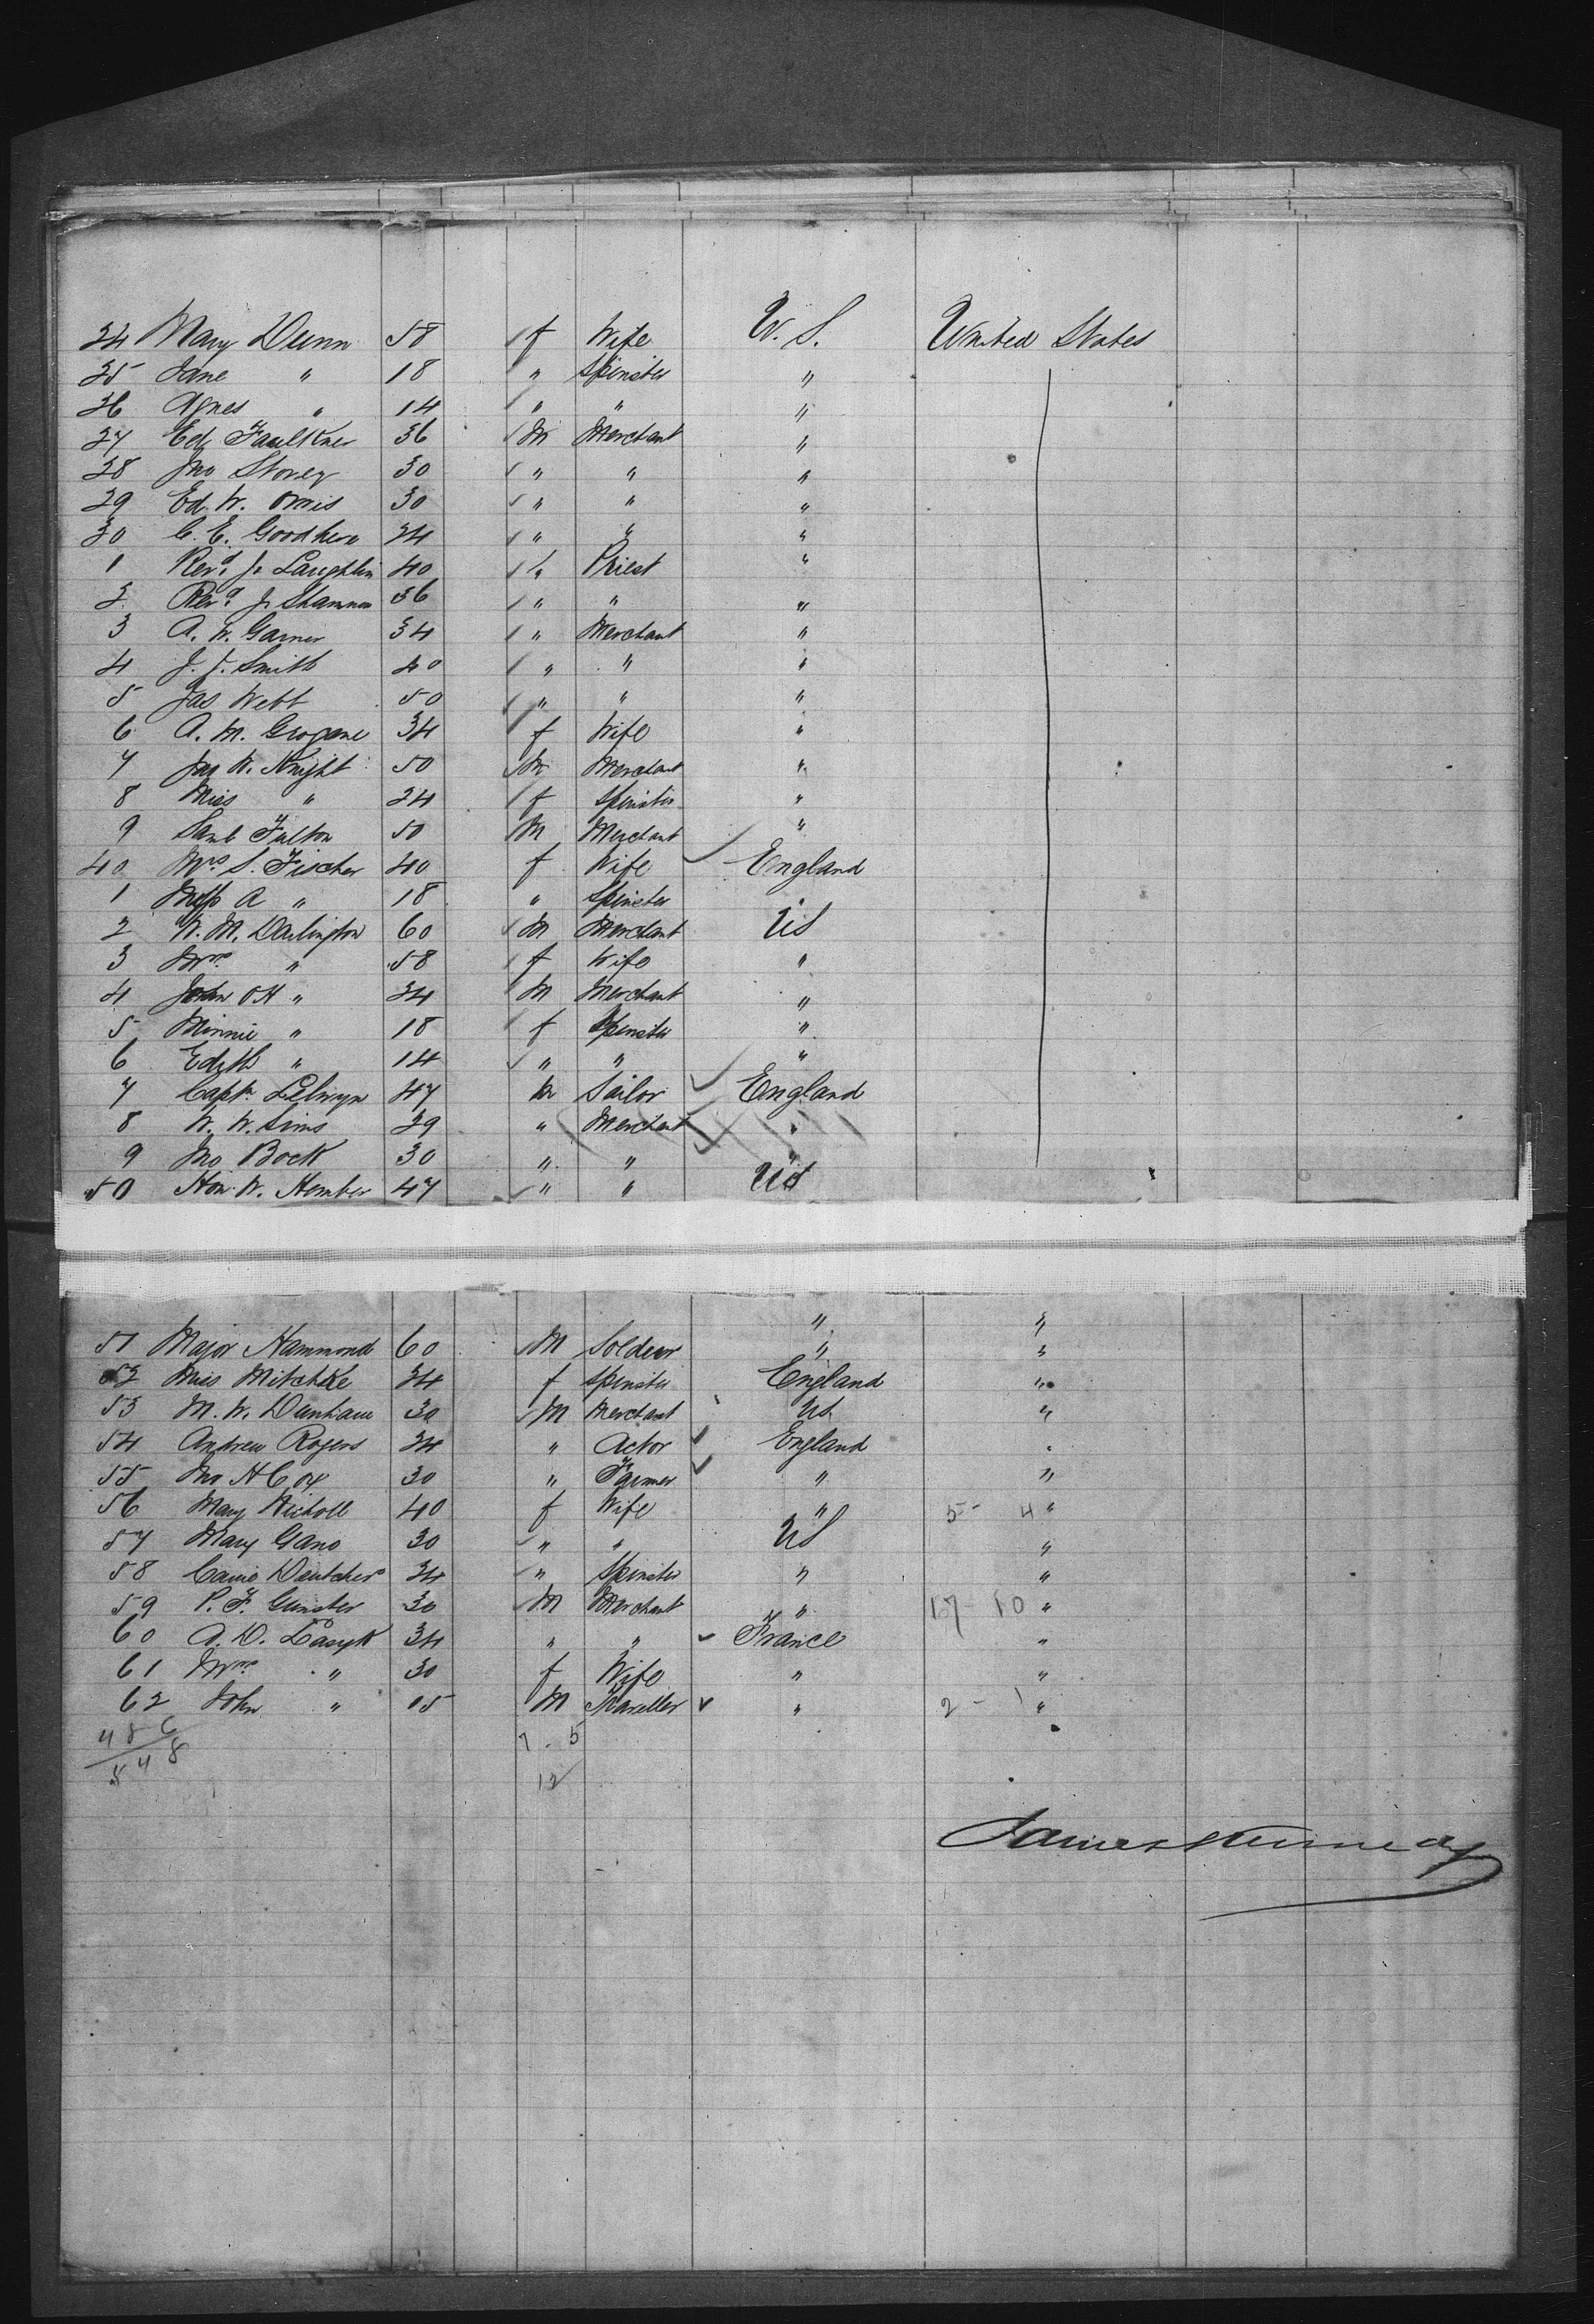 24 Mary Dunn 58 f Wife U. S. United States
25 Jane " 18 " Spinster "
26 Agnes " 14 " " "
27 Ed. Faulkner 36 M Merchant "
28 Jno Storey 30 " " "
29 Ed. W. Orvis 30 " " "
30 C. E. Goodhere 24 " " "
1 Revd. J. Laughlin 40 " Priest "
2 Revd. J. Shannon 36 " " "
3 A. W. Garner 34 " Merchant "
4 J. J. Smith 40 " " "
5 Jas Webb 50 " " "
6 A. M. Grogane 34 f Wife "
7 Jas W. Knight 50 M Merchant "
8 Miss " 24 f Spinster "
9 Saml Fulton 50 M Merchant "
40 Mrs S. Fischer 40 f Wife England
1 Miss A " 18 " Spinster "
2 W. M. Darlington 60 M Merchant US
3 Mrs " 58 f Wife "
4 John OH " 24 M Merchant "
5 Minnie " 18 f Spinster "
6 Edith " 14 " " "
7 Capt. 47 M Sailor England
8 W. W. Sims 29 " Merchant "
9 Jno Bock 30 " " "
50 Hon. W. Hember 47 " " US
" "
51 Major Hammond 60 M Soldier " "
52 Miss Mitchke 24 f Spinster England "
53 M. W. Danham 30 M Merchant US "
54 Andrew Rogers 34 " Actor England "
55 Jno H Cox 30 " Farmer " "
56 Mary Nicholl 40 f Wife " 5 - 4 "
57 Mary Gano 30 " " US "
58 Carrie Deutcher 24 " Spinster " "
59 P. F. Gunster 30 M Merchant " 17 - 10 "
60 A. D. 34 " " France "
61 Mrs " 30 f Wife " "
62 John " 05 M Traveller " 2 - 1 "
486 7 - 5
548 12
James Kennedy